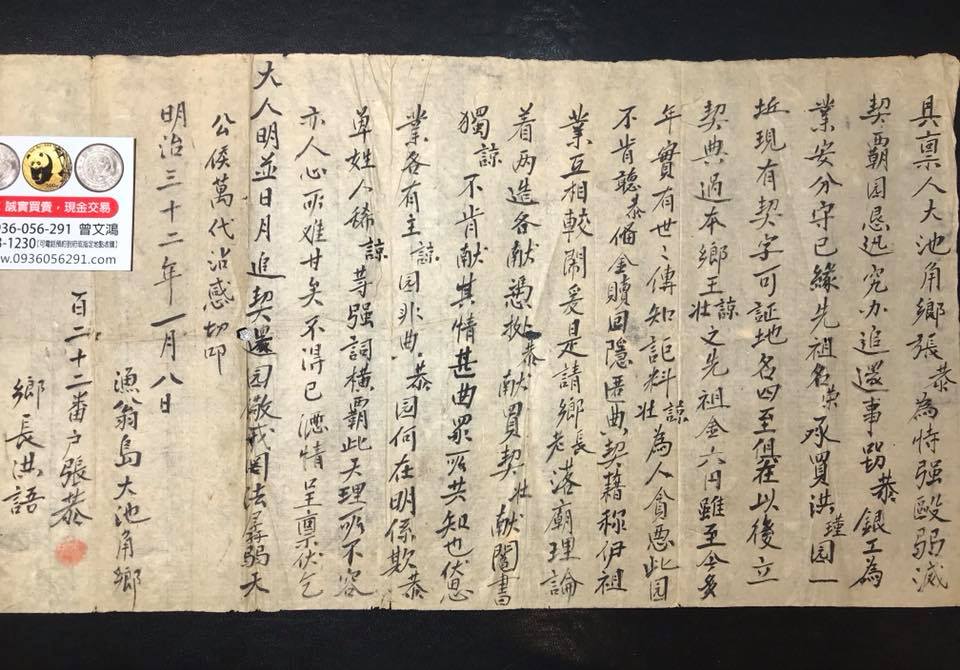 具稟人大池角鄉張恭為恃强毆弱滅
契覇园恳迅究办追還事 恭銀工為
業安分守已緣先祖名荣承買洪瑾园一
坵現有契字可証地名四至俱在以後立
契典過本鄉王諒壮之先祖金六円雖至今多
年實有世々傳知詎料諒壮為人貪惡此园
不肯聽恭備金贖回隱匿典契藉称伊祖
業互相較鬧爰是請鄉長老落廟理論
着两造各献憑據恭献買契壮献鬮書
獨諒不肯献其情甚曲眾所共知也伏思
業各有主諒园非曲恭园何在明係欺恭
单姓人稀諒等强詞橫霸此天理所不容
亦人心所难甘矣不得已瀝情呈稟伏乞
大人明並日月追契還园敬戎罔法孱弱天
公侯萬代沾感切叩
明治三十二年一月八日
漁翁島大池角鄉
百二十二番户張恭
鄉長洪語
誠實買賣，現金交易
936-056-291 曾文鴻
8-1230
www.0936056291.com